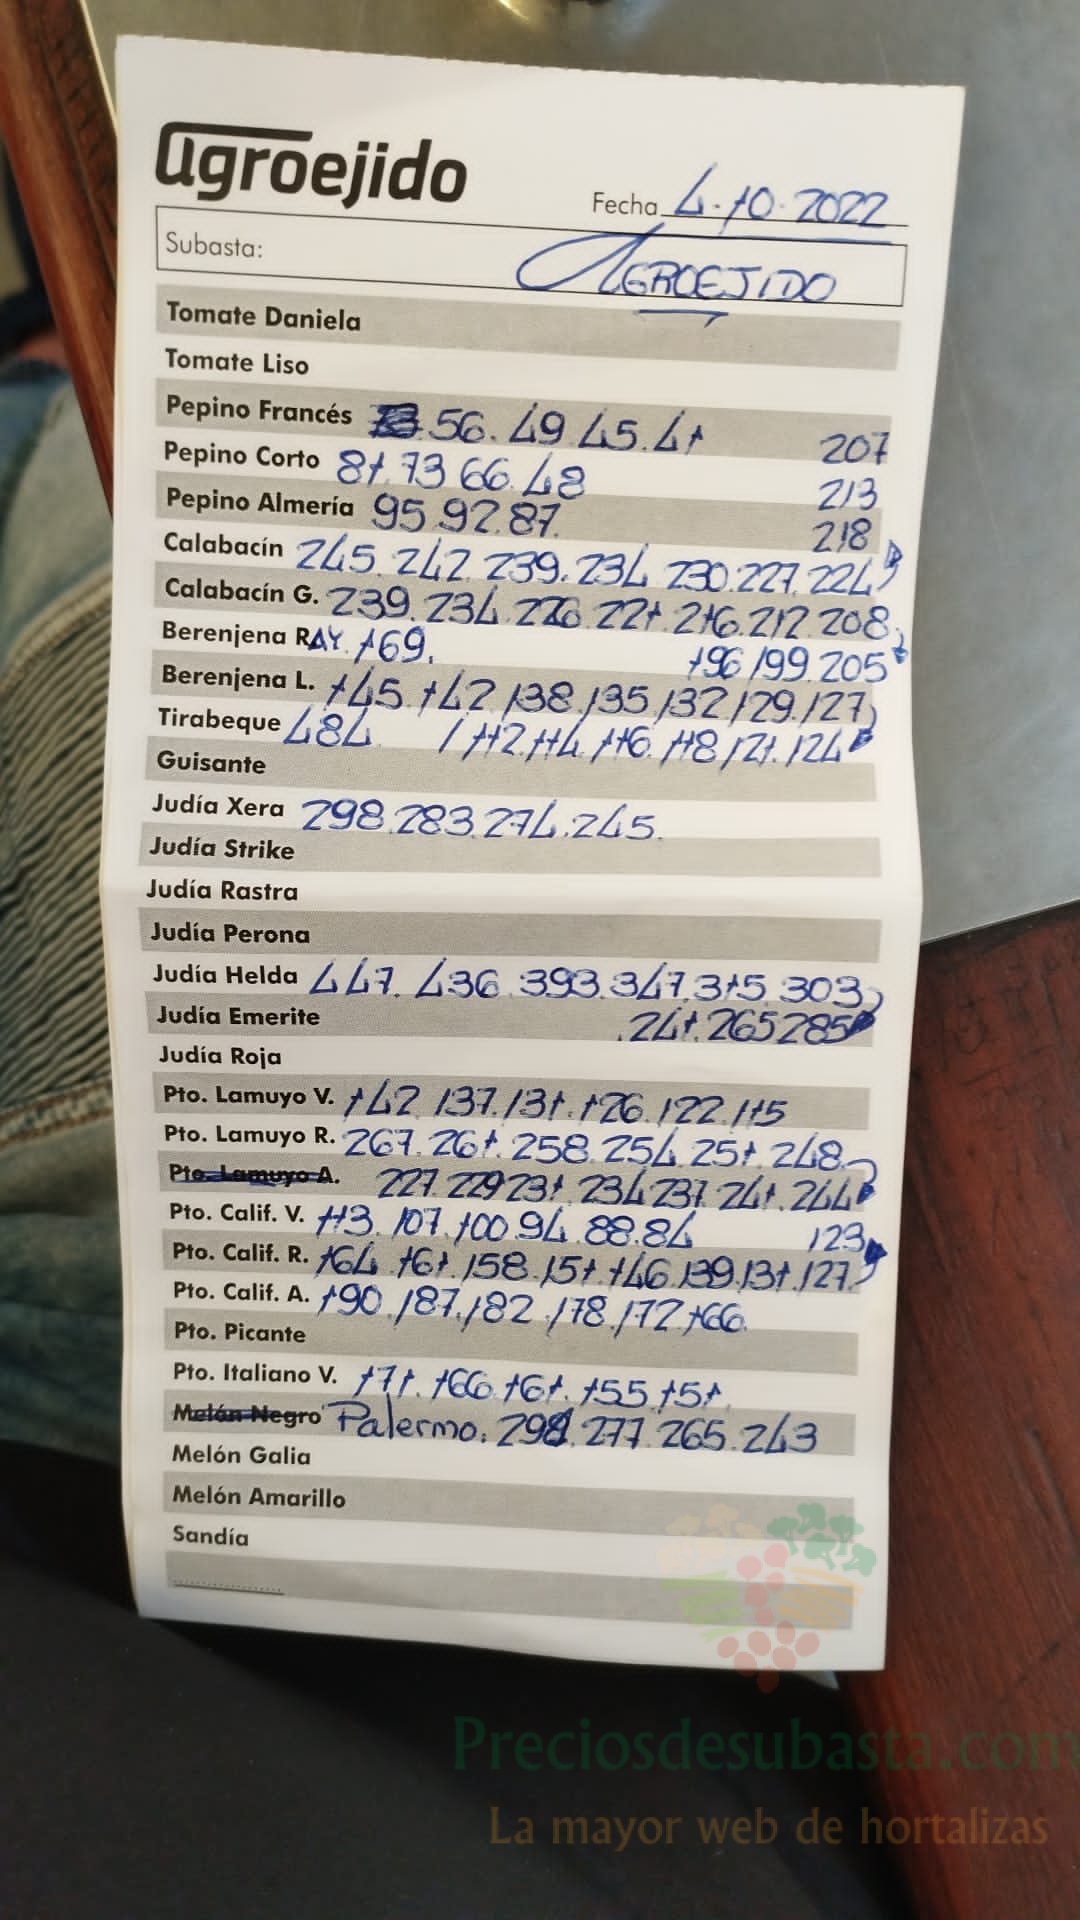 agroejido
Fecha 4.10.2022
Subasta: AGROEJIDO
Tomate Daniela
Tomate Liso
Pepino Francés 56. 49. 45. 41 207
Pepino Corto 81. 73 66. 48 213
Pepino Almería 95. 92. 87. 218
Calabacín 245. 242. 239. 234 230. 227. 224
Calabacín G. 239. 234. 226. 221. 216. 212. 208.
Berenjena RAY. 169. 196 199. 205
Berenjena L. 145. 142 138. 135. 132 129. 127
Tirabeque 484. 112. 114. 116. 118 121. 124
Guisante
Judía Xera 298. 283. 274. 245.
Judía Strike
Judía Rastra
Judía Perona
Judía Helda 447. 436. 393. 347. 315. 303
Judía Emerite 241. 265 285
Judía Roja
Pto. Lamuyo V. 142. 137. 131. 126. 122. 115
Pto. Lamuyo R. 267. 261. 258. 254. 251. 248
Pto. Lamuyo A. 227. 229 231 234 237. 241. 244
Pto. Calif. V. 113. 107. 100. 94. 88. 84 123
Pto. Calif. R. 164 161. 158. 151. 146 139. 131. 127
Pto. Calif. A. 190. 187. 182. 178. 172. 166.
Pto. Picante
Pto. Italiano V. 171. 166. 161. 155. 151.
Melón Negro Palermo. 277. 265. 243
Melón Galia
Melón Amarillo
Sandía
Preciosdesubasta.com
La mayor web de hortalizas